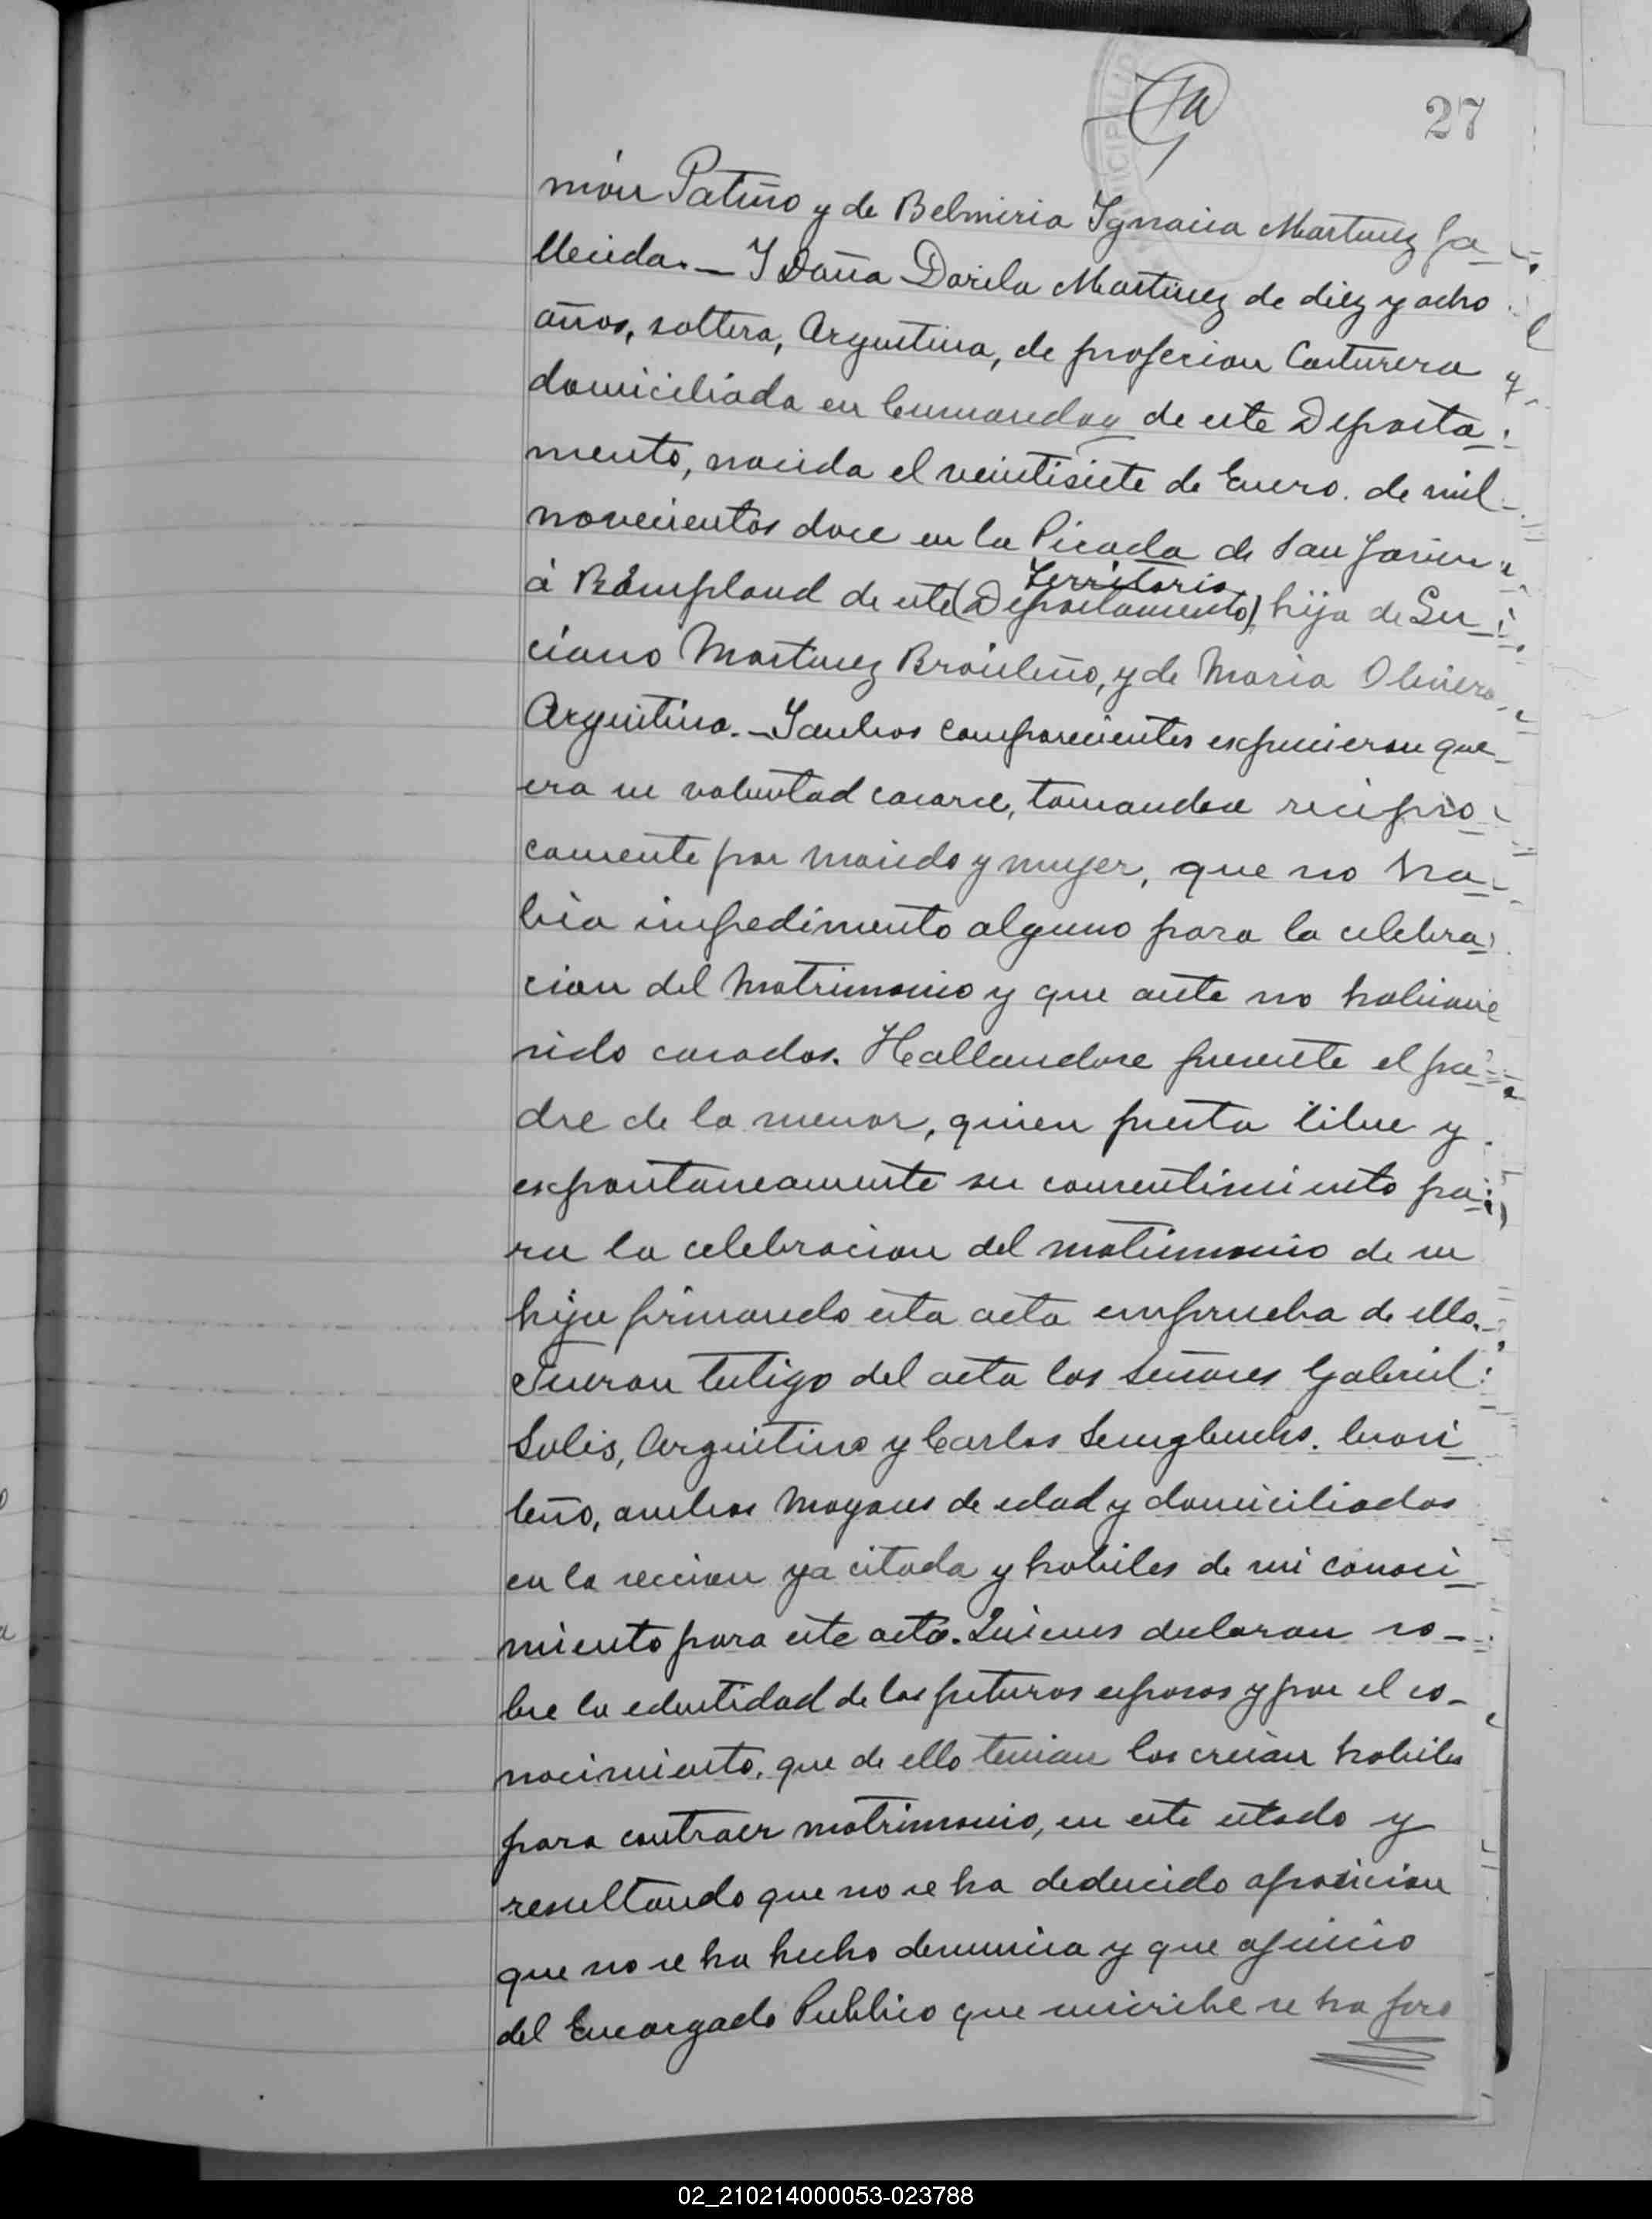 27
món Patiño y de Belmiria Ygnacia Martinez fa
llecida. — Y Doña Dorila Martinez de diez y ocho
años, soltera, Argentina, de profecion Costurera y
domiciliada en de este Departa
mento, nacida el veintisiete de Enero. de mil
novecientos doce en la Picada de San Javier
á Bompland de este (Departamento) Territorio hija de Lu
ciano Martinez Brasileño, y de Maria Olivera
Argentina. — Y ambos comparecientes expucieron que
era su voluntad casarse, tomandose recipro
camente por marido y mujer, que no ha
bia impedimento alguno para la celebra
cion del Matrimonio y que ante no habian
sido casados. Hallandose presente el pa
dre de la menor, quien presta libre y
espontaneamente su consentimiento pa
ra la celebracion del matrimonio de su
hija firmando esta acta en prueba de ello.
Fueron testigo del acta los Señores Gabriel
Solis, Argentino y Carlos brasi
leño, ambos Mayores de edad y domiciliados
en la seccion ya citada y habiles de mi conoci
miento para este acto. Quienes declaran so-
bre la edentidad de los futuros esposos y por el co-
nocimiento, que de ello tenian los creian habiles
para contraer matrimonio, en este estado y
resultando que no se ha deducido oposicion
que no se ha hecho denuncia y que ajuicio
del Encargado Publico que suscribe se ha
02_210214000053-023788